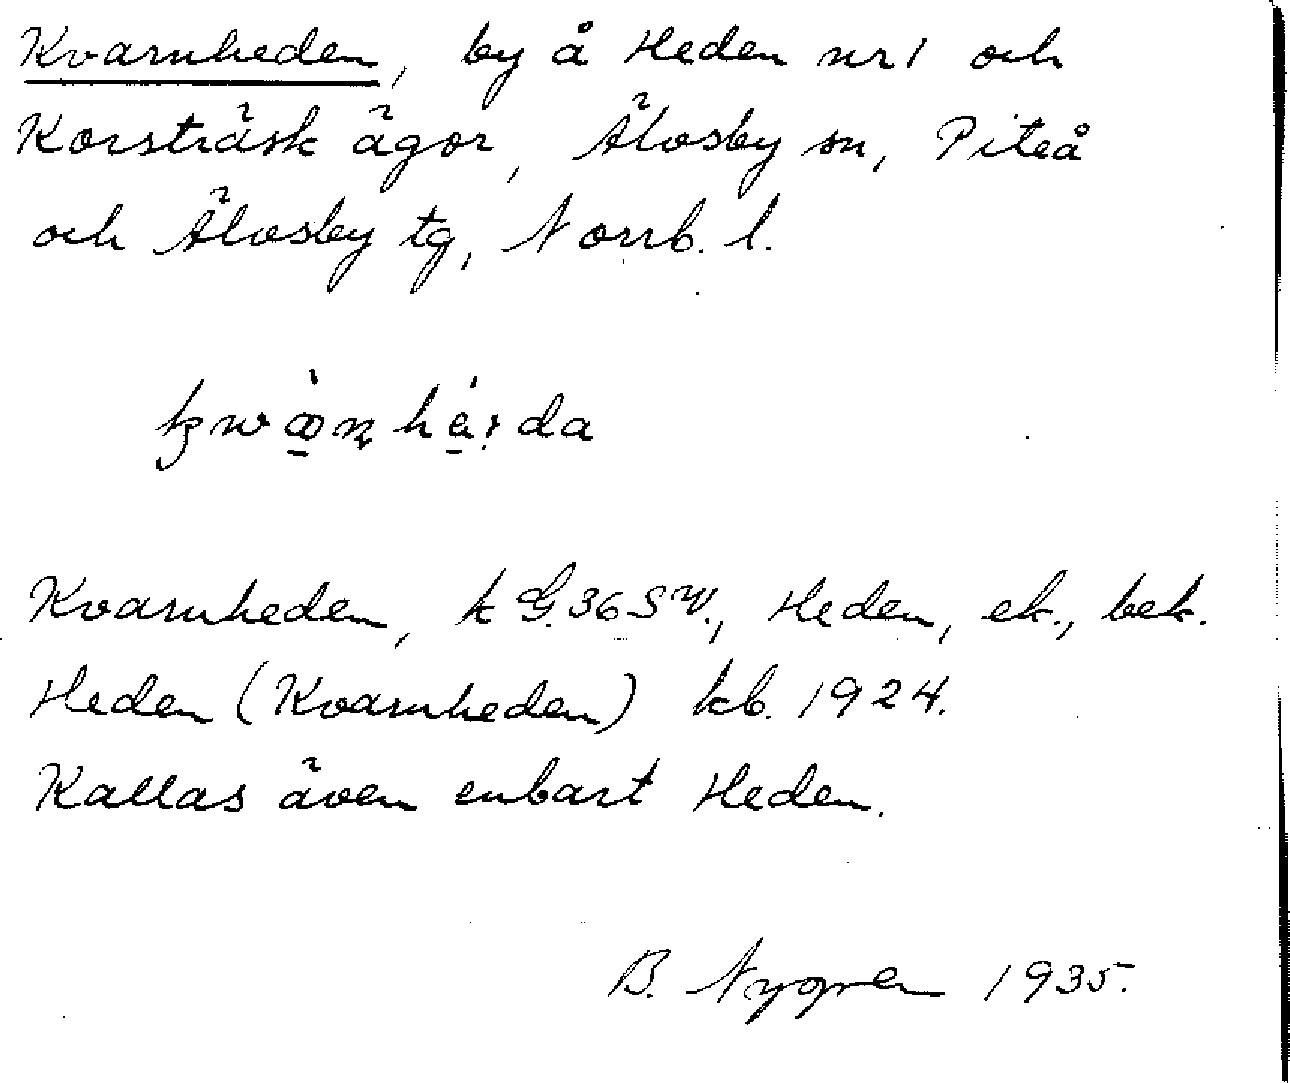 Kvarnheden, by å Heden nr 1 och
Korsträsk ägor, Älvsby sn, Piteå
och Älvsby tg, Norrb. l.
Kvarnheden, k G. 36 SW., Heden, ek., bek.
Heden (Kvarnheden) kb. 1924.
Kallas även enbart Heden.
B. Nygren 1935.